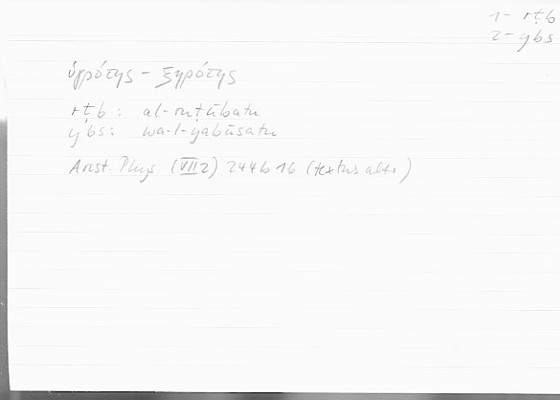 1- rṭb
2- ybs
ὑγρότης - ξηρότης
rṭb: al-ruṭūbatu
ybs: wa-l-yabūsatu
Arist. Phys. (VII 2) 244b16 (textus alter)